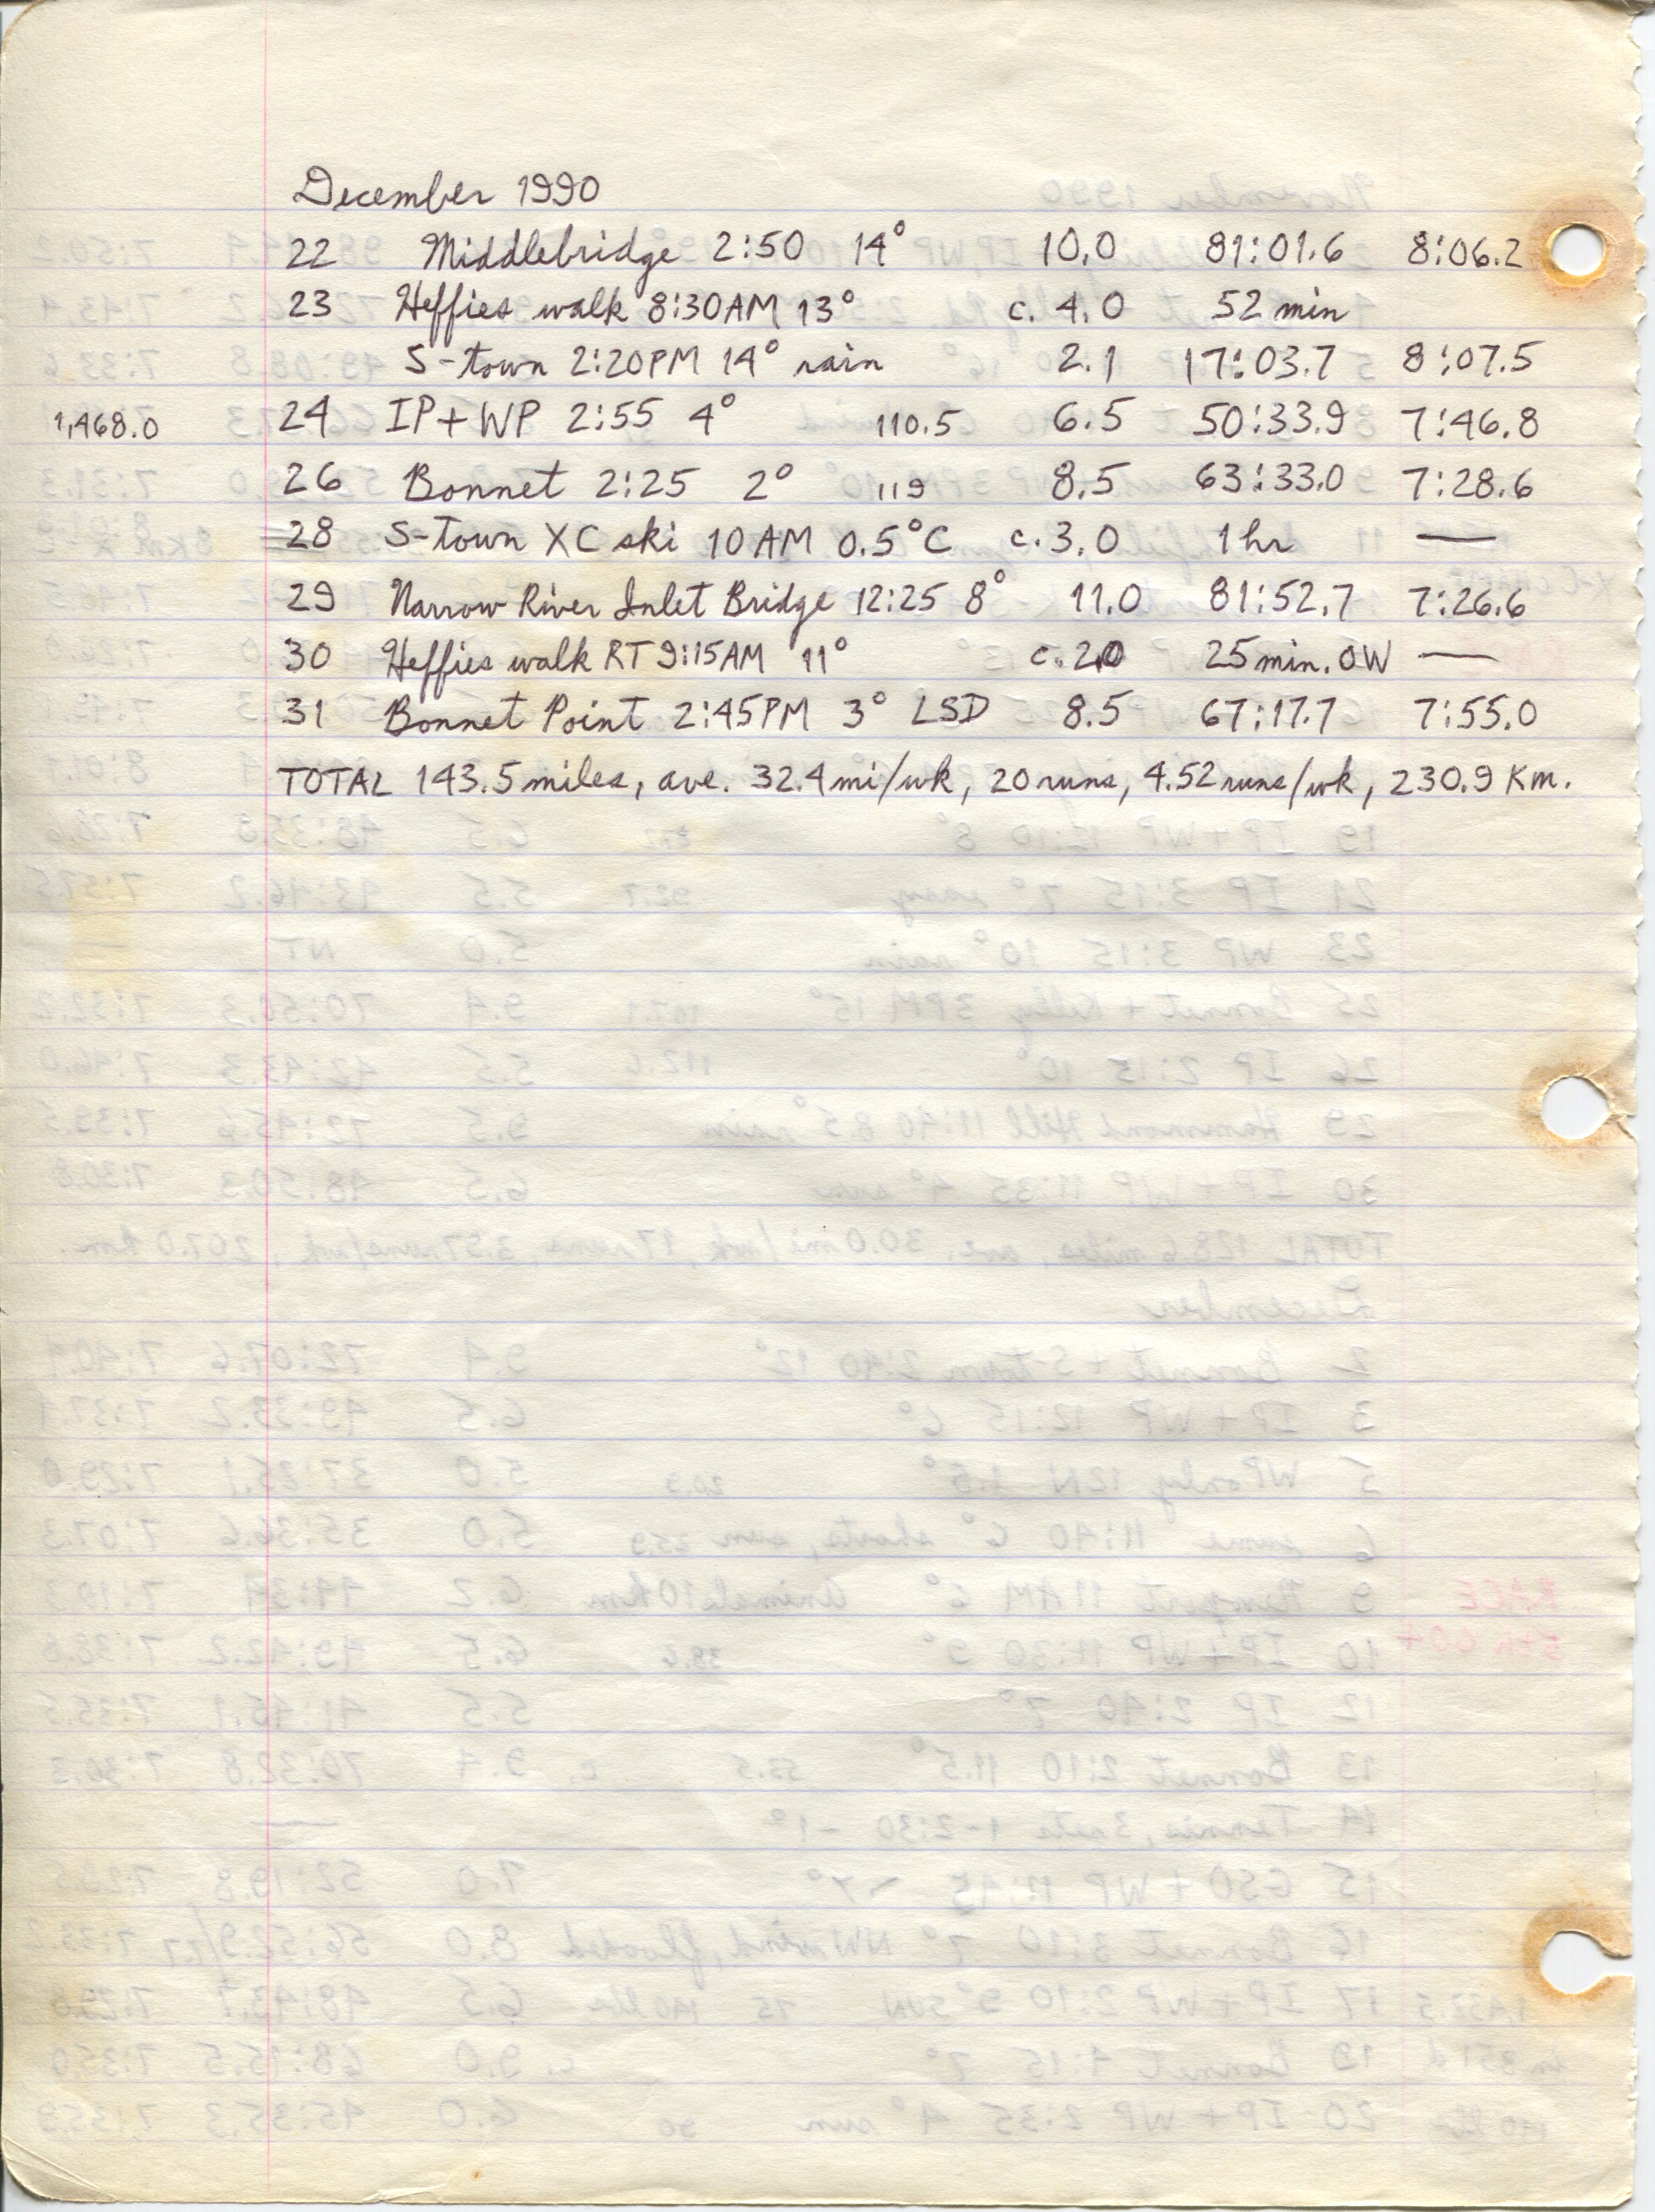 December 1990
22 Middlebridge 2:50 14° 10.0 81:01.6 8:06.2
23 Heffies walk 8:30AM 13° c. 4.0 52 min
S-town 2:20PM 14° rain 2.1 17:03.7 8:07.5
1,468.0 24 IP+WP 2:55 4° 110.5 6.5 50:33.9 7:46.8
26 Bonnet 2:25 2° 119 8.5 63:33.0 7:28.6
28 S-Town XC ski 10 AM 0.5°C c. 3.0 1 hr —
29 Narrow River Inlet Bridge 12:25 8° 11.0 81:52.7 7:26.6
30 Heffies walk RT 9:15AM 11° c. 2.0 25 min. OW —
31 Bonnet Point 2:45PM 3° LSD 8.5 67:17.7 7:55.0
TOTAL 143.5 miles, ave. 32.4 mi/wk, 20 runs, 4.52 runs/wk, 230.9 Km.